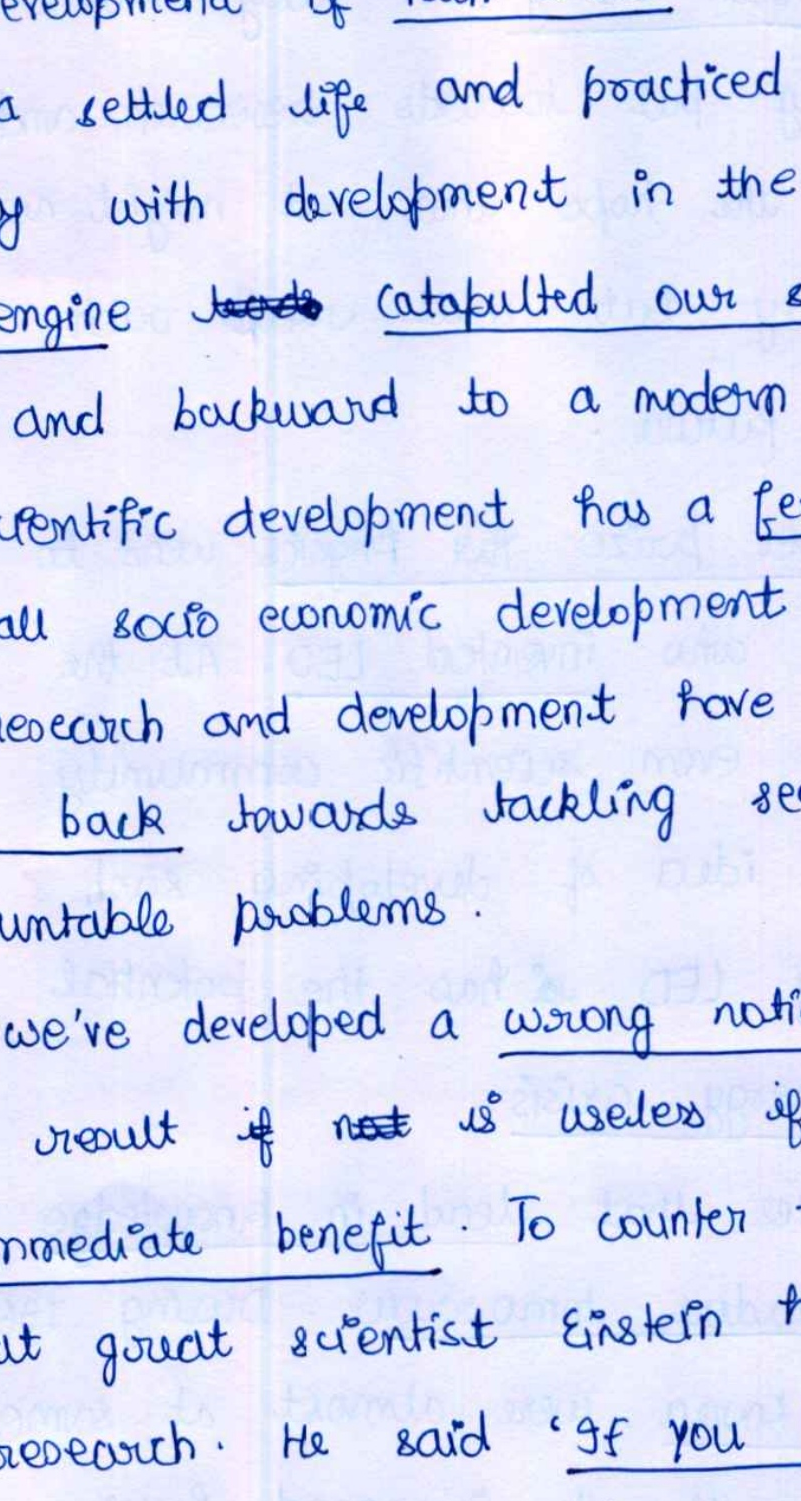 a settled life and practiced
with development in the
engine catapulted our
and backward to a modern
development has a
all socio economic development
research and development have
back towards tackling
problems.
we've developed a wrong
result if not is useless if
immediate benefit. To counter
great scientist Einstein
research. He said 'If you